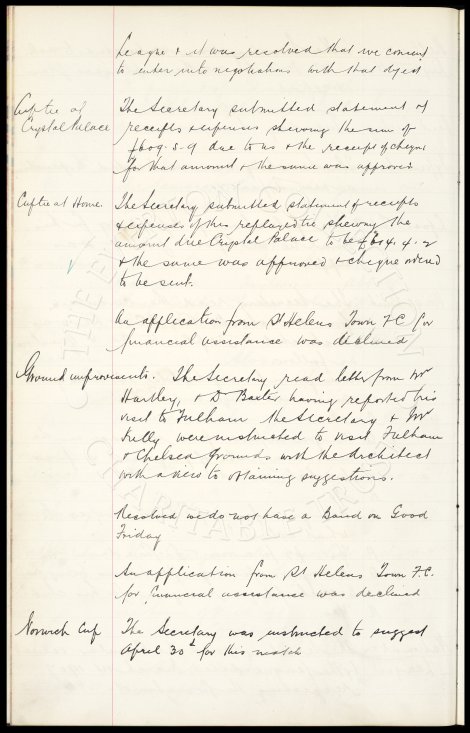 League & it was resolved that we consent
to enter into negotiations with that object
Cup tie at
Crystal Palace
The Secretary submitted statement of
receipts & expenses shewing the sum of
£609.5.9 due to us & the receipt of cheque
for that amount & the same was approved
Cup tie at Home.
The Secretary submitted statement of receipts
& expenses of this replayed tie shewing the
amount due Crystal Palace to be £614.4.2
& the same was approved & cheque ordered
to be sent.
An application from St Helens Town F.C. for
financial assistance was declined
Ground improvements. The Secretary read letter from Mr
Hartley, & Dr Baxter having reported his
visit to Fulham the Secretary & Mr
Kelly were instructed to visit Fulham
& Chelsea grounds with the Architect
with a view to obtaining suggestions.
Resolved we do not have a Band on Good
Friday
An application from St Helens Town F.C.
for financial assistance was declined
Norwich Cup
The Secretary was instructed to suggest
April 30th for this match
THE EVERTON COLLECTION
CHARITABLE TRUST